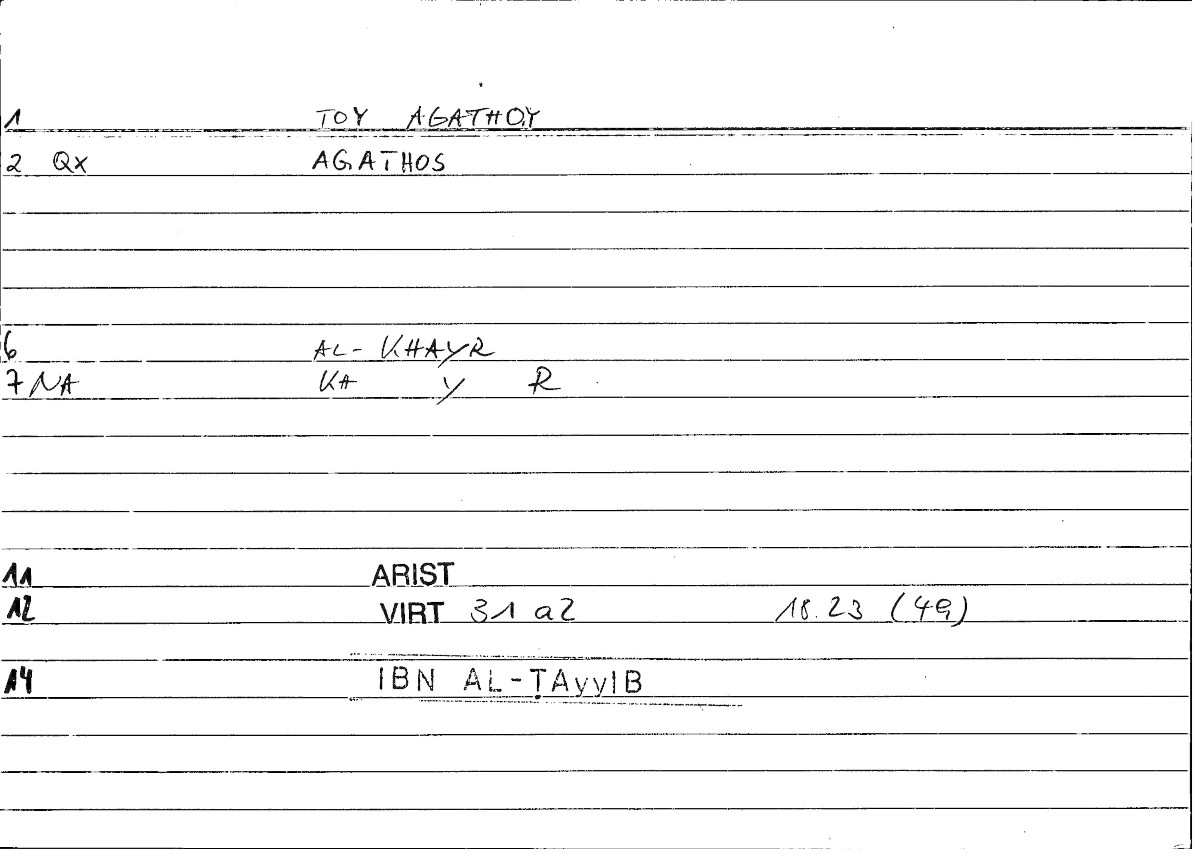 1 TOY AGATHOY
2 Qx AGATHOS
6 AL-KHAYR
7 NA KH Y R
11 ARIST
12 VIRT 31 a2 18.23 (4G)
14 IBN AL-ṬAyyIB